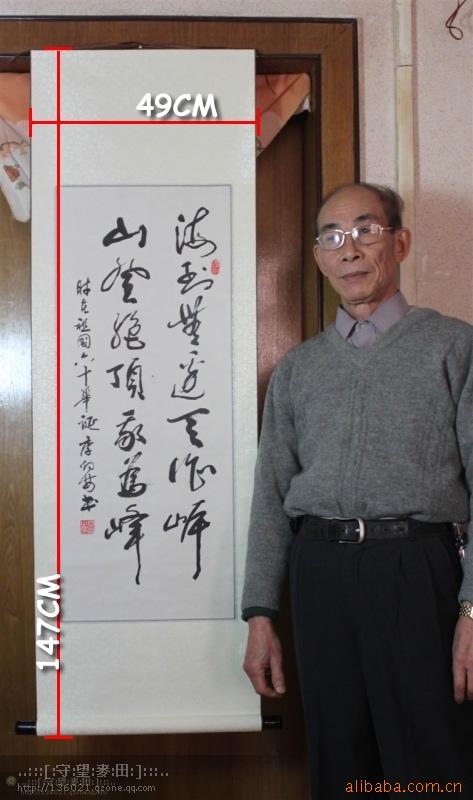 49CM
147CM
海到無邊天作岸
山登絕頂我為峰
時在祖國六十華誕李書
..:::[:守望:麥:田:]:::..
http://136021.qzone.qq.com
alibaba.com.cn